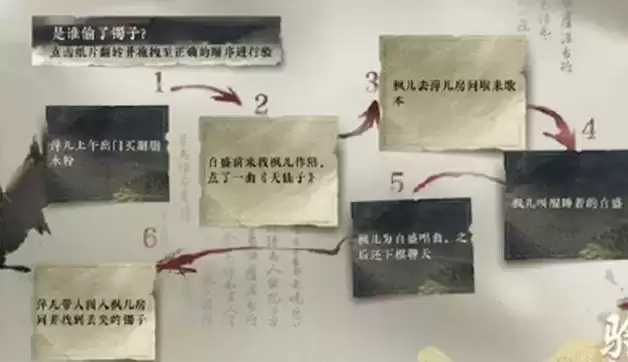 是谁偷了镯子?
点击纸片翻转并拖拽至正确的顺序进行验
1
萍儿上午出门买胭脂
水粉
2
白盛前来找枫儿作陪,
点了一曲《天仙子》
3
枫儿去萍儿房间取来歌
本
4
枫儿叫醒睡着的白盛
5
枫儿为白盛唱曲,之
后还下棋聊天
6
萍儿带人闯入枫儿房
间并找到丢失的镯子
验